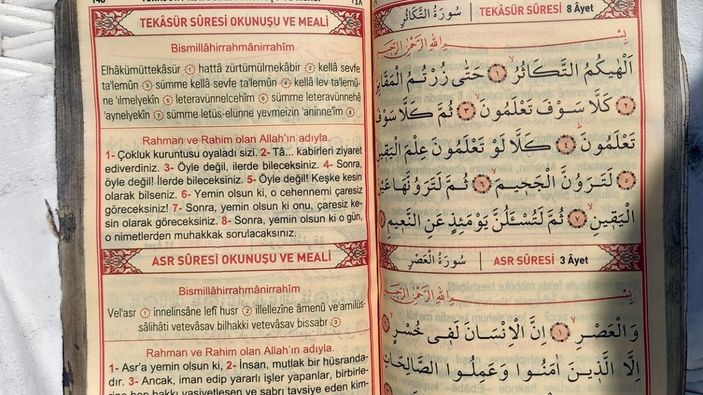 TEKÂSÜR SÛRESİ OKUNUŞU VE MEALİ
Bismillâhirrahmânirrahîm
Elhâkümüttekâsür ① hattâ zürtümülmekâbir ② kellâ sevfe
ta'lemûn ③ sümme kellâ sevfe ta'lemûn ④ kellâ lev ta'lemû-
ne 'ılmelyekîn ⑤ leteravünnelcehîm ⑥ sümme leteravünnehê
'aynelyekîn ⑦ sümme letüs-elünne yevmeizin 'aninne'îm ⑧
Rahman ve Rahim olan Allah'ın adıyla.
1- Çokluk kuruntusu oyaladı sizi. 2- Tâ... kabirleri ziyaret
ediverdiniz. 3- Öyle değil, ilerde bileceksiniz. 4- Sonra,
öyle değil! İlerde bileceksiniz. 5- Öyle değil! Keşke kesin
olarak bilseniz. 6- Yemin olsun ki, o cehennemi çaresiz
göreceksiniz! 7- Sonra, yemin olsun ki onu, çaresiz ke-
sin olarak göreceksiniz. 8- Sonra, yemin olsun ki o gün,
o nimetlerden muhakkak sorulacaksınız.
ASR SÛRESİ OKUNUŞU VE MEALİ
Bismillâhirrahmânirrahîm
Vel'asr ① innelinsâne lefî husr ② illellezîne âmenû ve'amilûs-
sâlihâti vetevâsav bilhakki vetevâsav bissabr ③
Rahman ve Rahim olan Allah'ın adıyla.
1- Asr'a yemin olsun ki, 2- İnsan, mutlak bir hüsranda-
dır. 3- Ancak, iman edip yararlı işler yapanlar, birbirle-
سُورَةُ التَّكَاثُرِ TEKÂSÜR SÛRESİ 8 Âyet
بِسْمِ اللهِ الرَّحْمٰنِ الرَّحِيمِ
اَلْهٰيكُمُ التَّكَاثُرُ ۝١ حَتّٰى زُرْتُمُ الْمَقَابِرَ
۝٢ كَلَّا سَوْفَ تَعْلَمُونَ ۝٣ ثُمَّ كَلَّا سَوْفَ
تَعْلَمُونَ ۝٤ كَلَّا لَوْ تَعْلَمُونَ عِلْمَ الْيَقِينِ
۝٥ لَتَرَوُنَّ الْجَحِيمَ ۝٦ ثُمَّ لَتَرَوُنَّهَا عَيْنَ
الْيَقِينِ ۝٧ ثُمَّ لَتُسْـَٔلُنَّ يَوْمَئِذٍ عَنِ النَّعِيمِ
سُورَةُ الْعَصْرِ ASR SÛRESİ 3 Âyet
بِسْمِ اللهِ الرَّحْمٰنِ الرَّحِيمِ
وَالْعَصْرِ ۝١ اِنَّ الْاِنْسَانَ لَفِى خُسْرٍ ۝٢
اِلَّا الَّذِينَ اٰمَنُوا وَعَمِلُوا الصَّالِحَاتِ